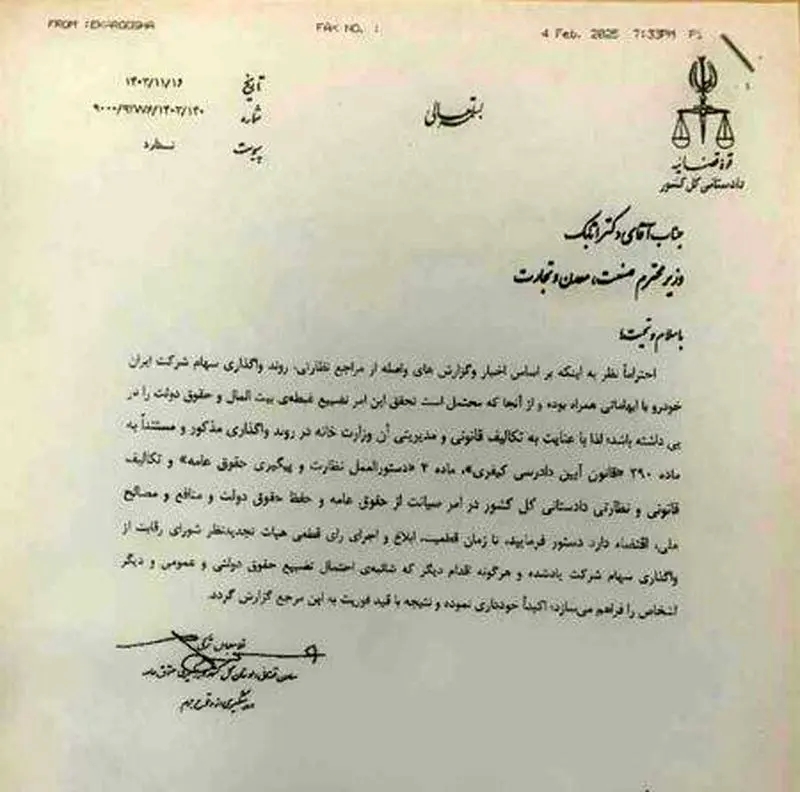 FROM :EKARGOSHA FAX NO. : 4 Feb. 2025 7:33PM P1
بسمه‌تعالی
قوه قضائیه
دادستانی کل کشور
تاریخ ۱۴۰۳/۱۱/۱۶
شماره ۹۰۰۰/۹۲۷۷۶/۱۴۰۳/۱۴۰
پیوست ندارد
جناب آقای دکتر اتابک
وزیر محترم صنعت، معدن و تجارت
با سلام و تحیت؛
احتراماً نظر به اینکه بر اساس اخبار وگزارش های واصله از مراجع نظارتی، روند واگذاری سهام شرکت ایران
خودرو با ابهاماتی همراه بوده و از آنجا که محتمل است تحقق این امر تضییع غبطه‌ی بیت المال و حقوق دولت را در
پی داشته باشد؛ لذا با عنایت به تکالیف قانونی و مدیریتی آن وزارت خانه در روند واگذاری مذکور و مستنداً به
ماده ۲۹۰ «قانون آیین دادرسی کیفری»، ماده ۴ «دستورالعمل نظارت و پیگیری حقوق عامه» و تکالیف
قانونی و نظارتی دادستانی کل کشور در امر صیانت از حقوق عامه و حفظ حقوق دولت و منافع و مصالح
ملی، اقتضاء دارد دستور فرمایید، تا زمان قطعیت، ابلاغ و اجرای رای قطعی هیات تجدیدنظر شورای رقابت از
واگذاری سهام شرکت یادشده و هرگونه اقدام دیگر که شائبه‌ی احتمال تضییع حقوق دولتی و عمومی و دیگر
اشخاص را فراهم می‌سازد؛ اکیداً خودداری نموده و نتیجه با قید فوریت به این مرجع گزارش گردد.
غلامعباس ترکی
معاون قضائی دادستان کل کشور حقوق عامه
و پیشگیری از وقوع جرم